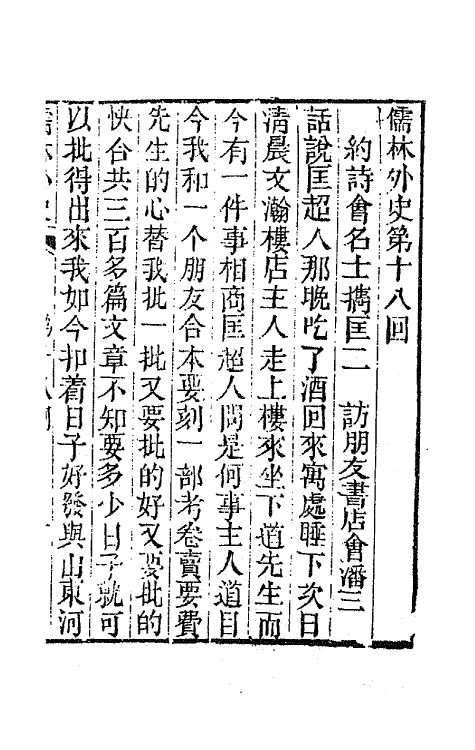 儒林外史第十八回
約詩會名士攜匡二　訪朋友書店會潘三
話說匡超人那晚吃了酒回來寓處睡下次日
淸晨文瀚樓店主人走上樓來坐下道先生而
今有一件事相商匡超人問是何事主人道目
今我和一个朋友合本要刻一部考卷賣要費
先生的心替我批一批又要批的好又要批的
快合共三百多篇文章不知要多少日子就可
以批得出來我如今扣着日子好發與山東河
儒林外史